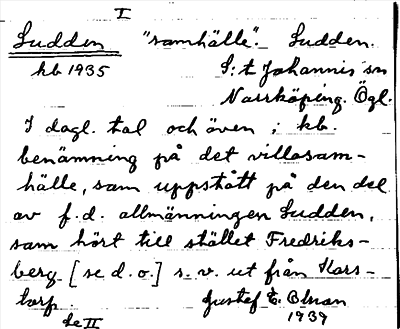 I
Sudden "samhälle". Sudden.
kb 1935 S:t Johannis sn
Norrköping. Ögl.
I dagl. tal och även i kb.
benämning på det villasam-
hälle, som uppstått på den del
av f.d. allmänningen Sudden,
som hört till stället Fredriks-
berg [se d.o.] s.v. ut från Kors-
torp. Gustaf E. Olsson
Se II 1939